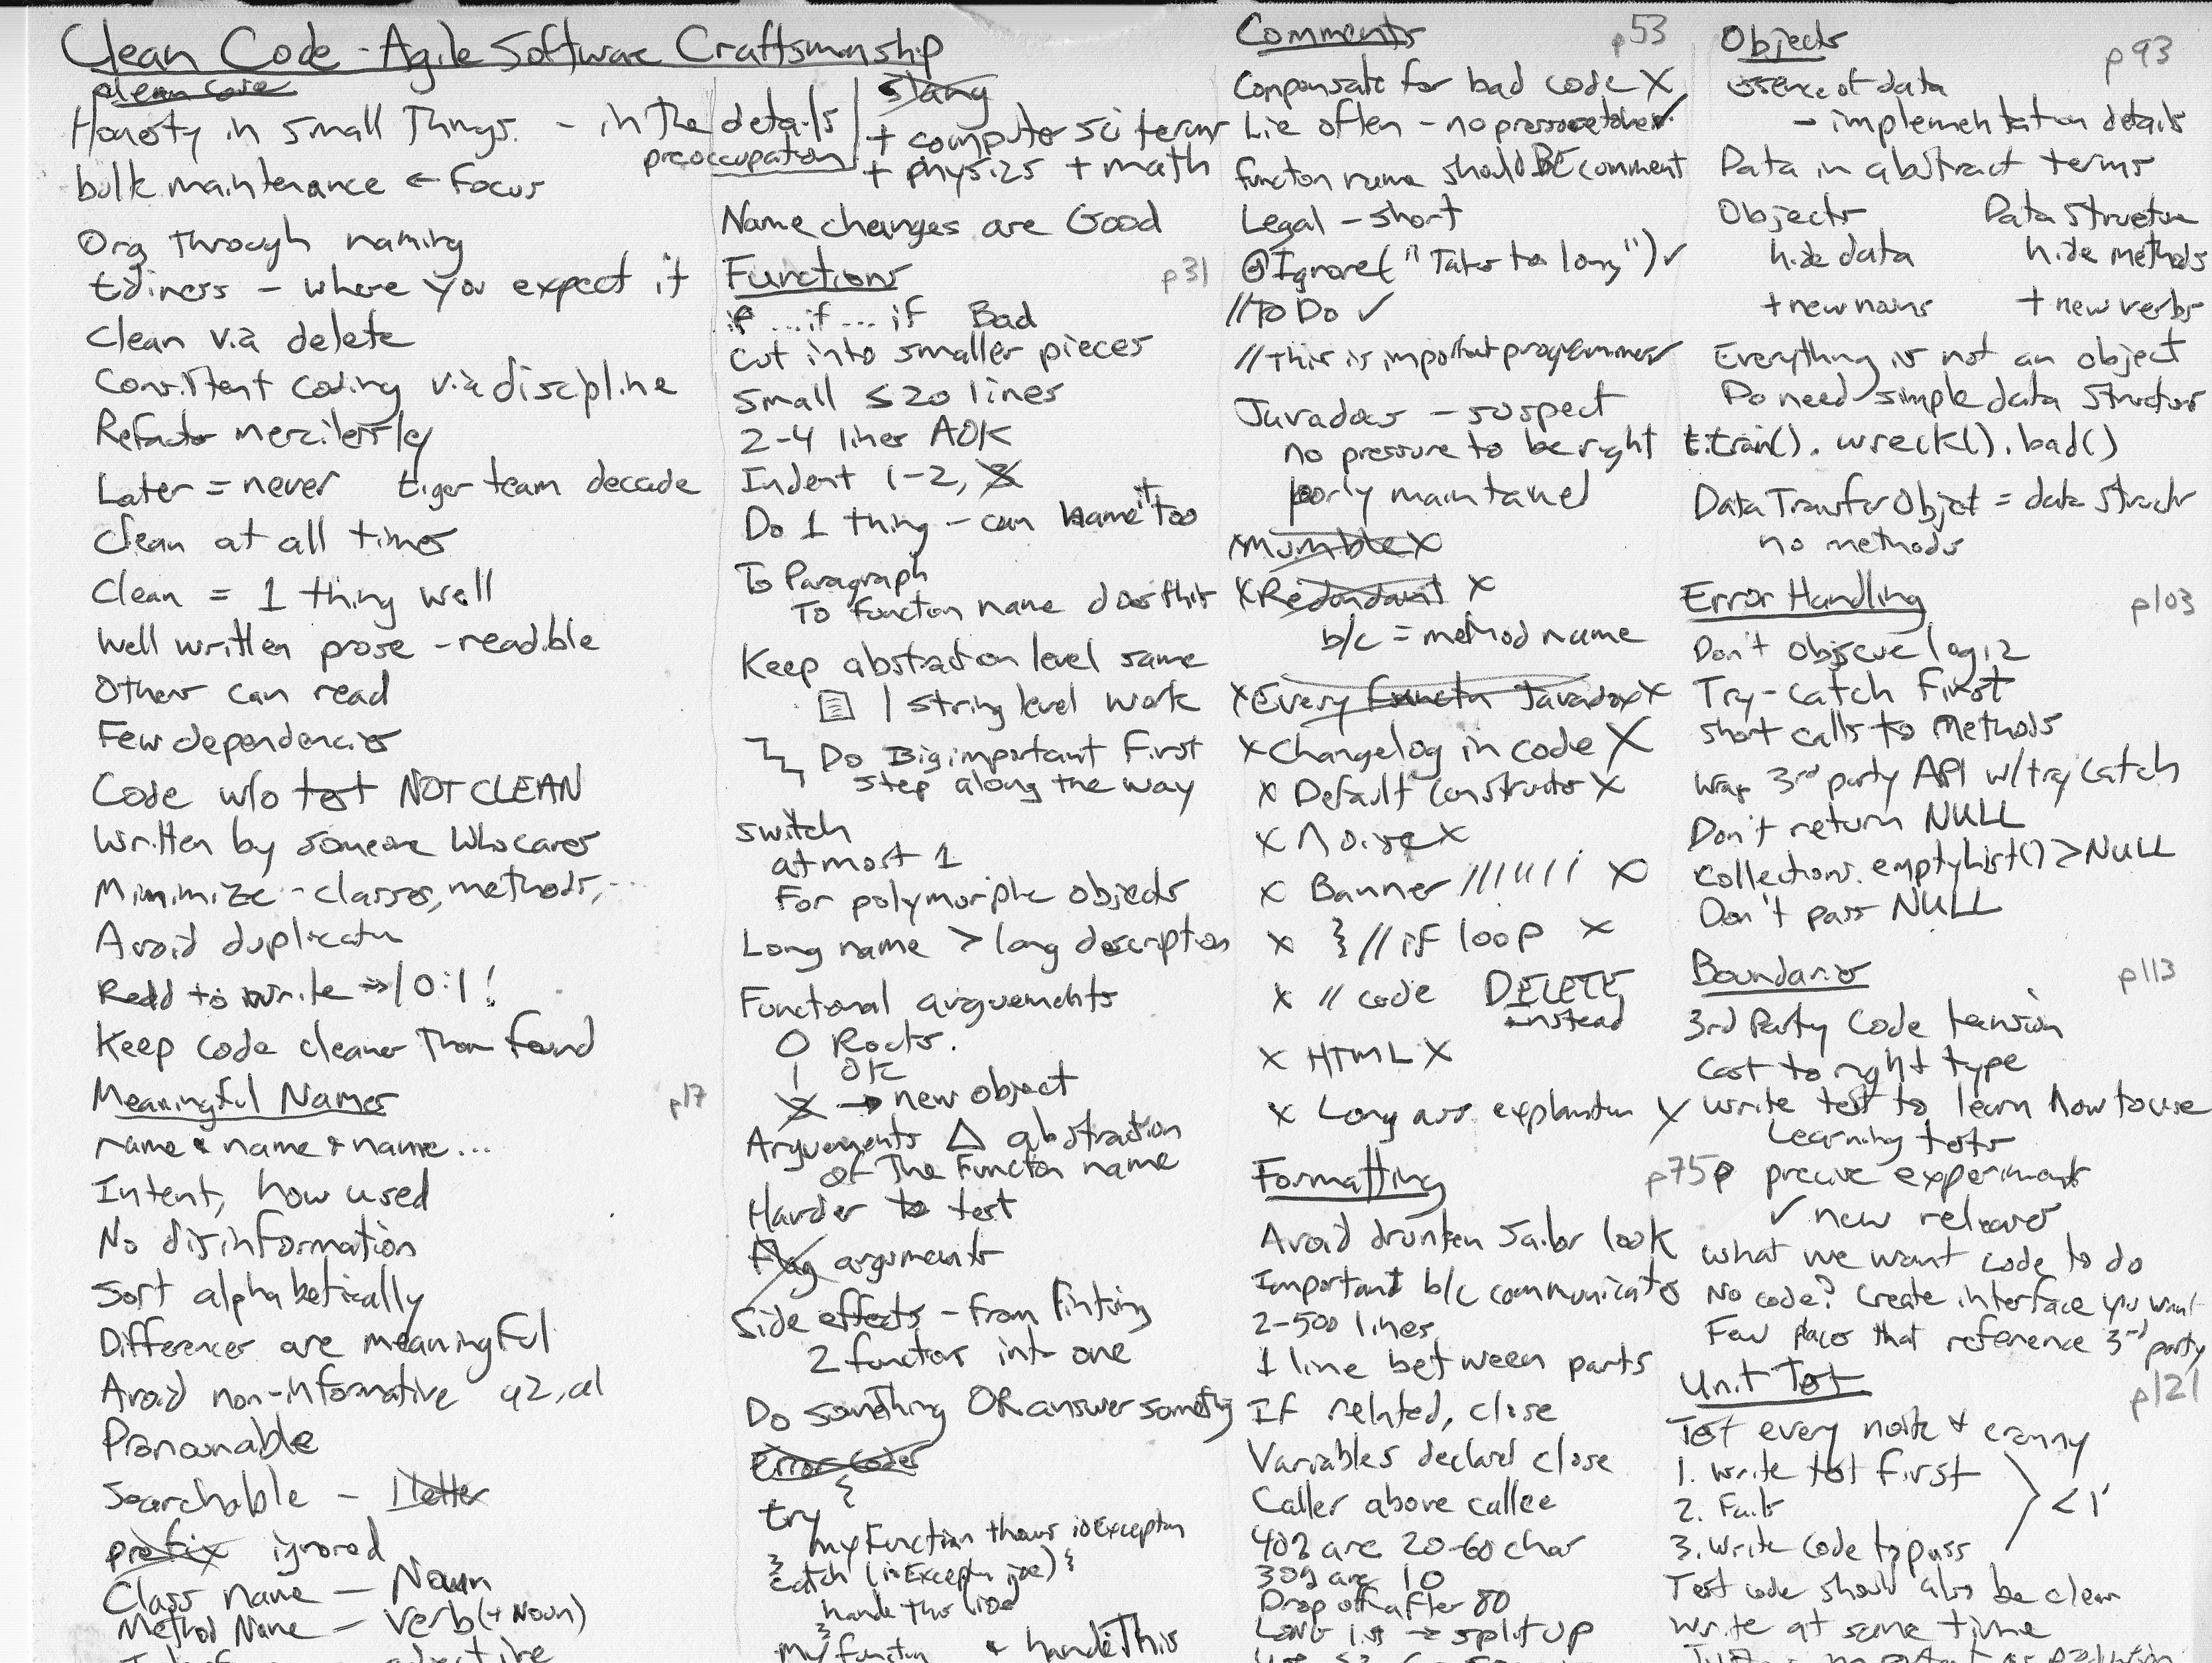 Clean Code - Agile Software Craftsmanship
clean core
Honesty in small things. - in the details
preoccupation
bulk maintenance ← Focus
Org through naming
tidiness - where you expect it
Clean via delete
Consistent coding via discipline
Refactor mercilessly
Later = never tiger team decade
Clean at all times
Clean = 1 thing well
Well written prose - readible
Others can read
Few dependencies
Code w/o test NOT CLEAN
Written by someone who cares
Minimize - classes, methods, ...
Avoid duplicatn
Read to write → 10:1!
Keep code cleaner than found
Meaningful Names p17
name & name & name...
Intent, how used
No disinformation
Sort alphabetically
Differences are meaningful
Avoid non-informative a2, a1
Pronounable
Searchable - 1 letter
prefix ignored
Class name - Noun
Method Name - verb (+ Noun)
adjective
slang
+ computer sci terms
+ physics + math
Name changes are Good
Functions p31
if ... if ... if Bad
cut into smaller pieces
Small ≤ 20 lines
2-4 liner AOK
Indent 1-2, 3
Do 1 thing - can name it too
To Paragraph
To function name does this
Keep abstraction level same
1 string level work
Do Big important First
step along the way
switch
at most 1
For polymorphic objects
Long name > long description
Functional arguements
0 Rocks.
1 OK
→ new object
Arguements Δ abstraction
of the function name
Harder to test
Flag arguments
Side effects - from
2 functions into one
Do something OR answer something
Error codes
try {
my Function throws ioException
} catch (ioExceptn ioe) {
handle This (ioe
}
my function & handle This
Comments p53
Compensate for bad code X
Lie often - no pressure ✓
functon name should BE comment
Legal - short
@Ignore("Takes too long") ✓
//To Do ✓
//This is important programmer ✓
Javadocs - suspect
no pressure to be right
poorly maintained
X Mumble X
X Redundant X
b/c = method name
X Every Functn Javadoc X
X Changelog in code X
X Default Constructor X
X Noise X
X Banner /////// X
X } // if loop X
X // code DELETE
instead
X HTML X
X Long ass explanation X
Formatting p75
Avoid drunken Sailor look
Important b/c communicates
2-500 lines
1 line between parts
If related, close
Variables declared close
Caller above callee
40% are 20-60 char
30% are 10
Drop off after 80
Long list → split up
Objects p93
essence of data
- implementation details
Data in abstract terms
Objects Data Structure
hide data hide methods
+ new nouns + new verbs
Everything is not an object
Do need simple data structures
t.train().wreck().bad()
Data Transfer Object = data structr
no methods
Error Handling p103
Don't obscure logic
Try-catch first
short calls to Methods
Wrap 3rd party API w/try catch
Don't return NULL
Collections.emptyList() > NULL
Don't pass NULL
Boundaries p113
3rd Party Code tension
Cast to right type
write test to learn how to use
Learning tests
precise experiments
✓ new releases
what we want code to do
No code? Create interface you want
Few places that reference 3rd party
Unit Test p121
Test every nook & cranny
1. Write test first
2. Fails
3. Write code to pass
< 1'
Test code should also be clean
Write at same time